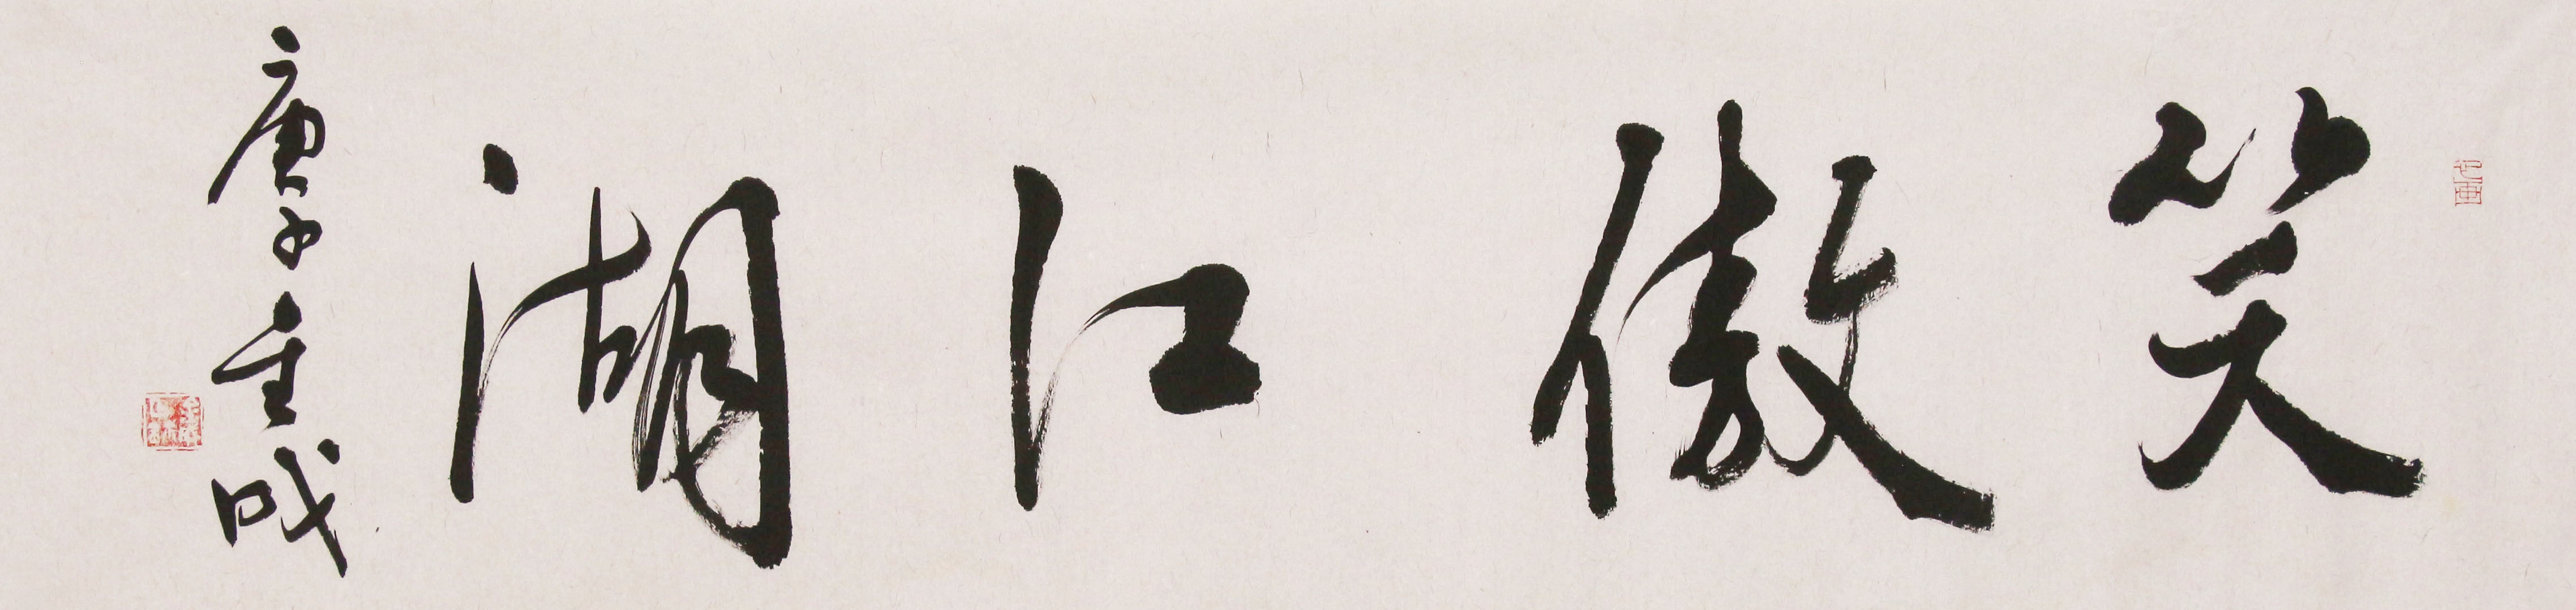 笑傲江湖
庚子重成